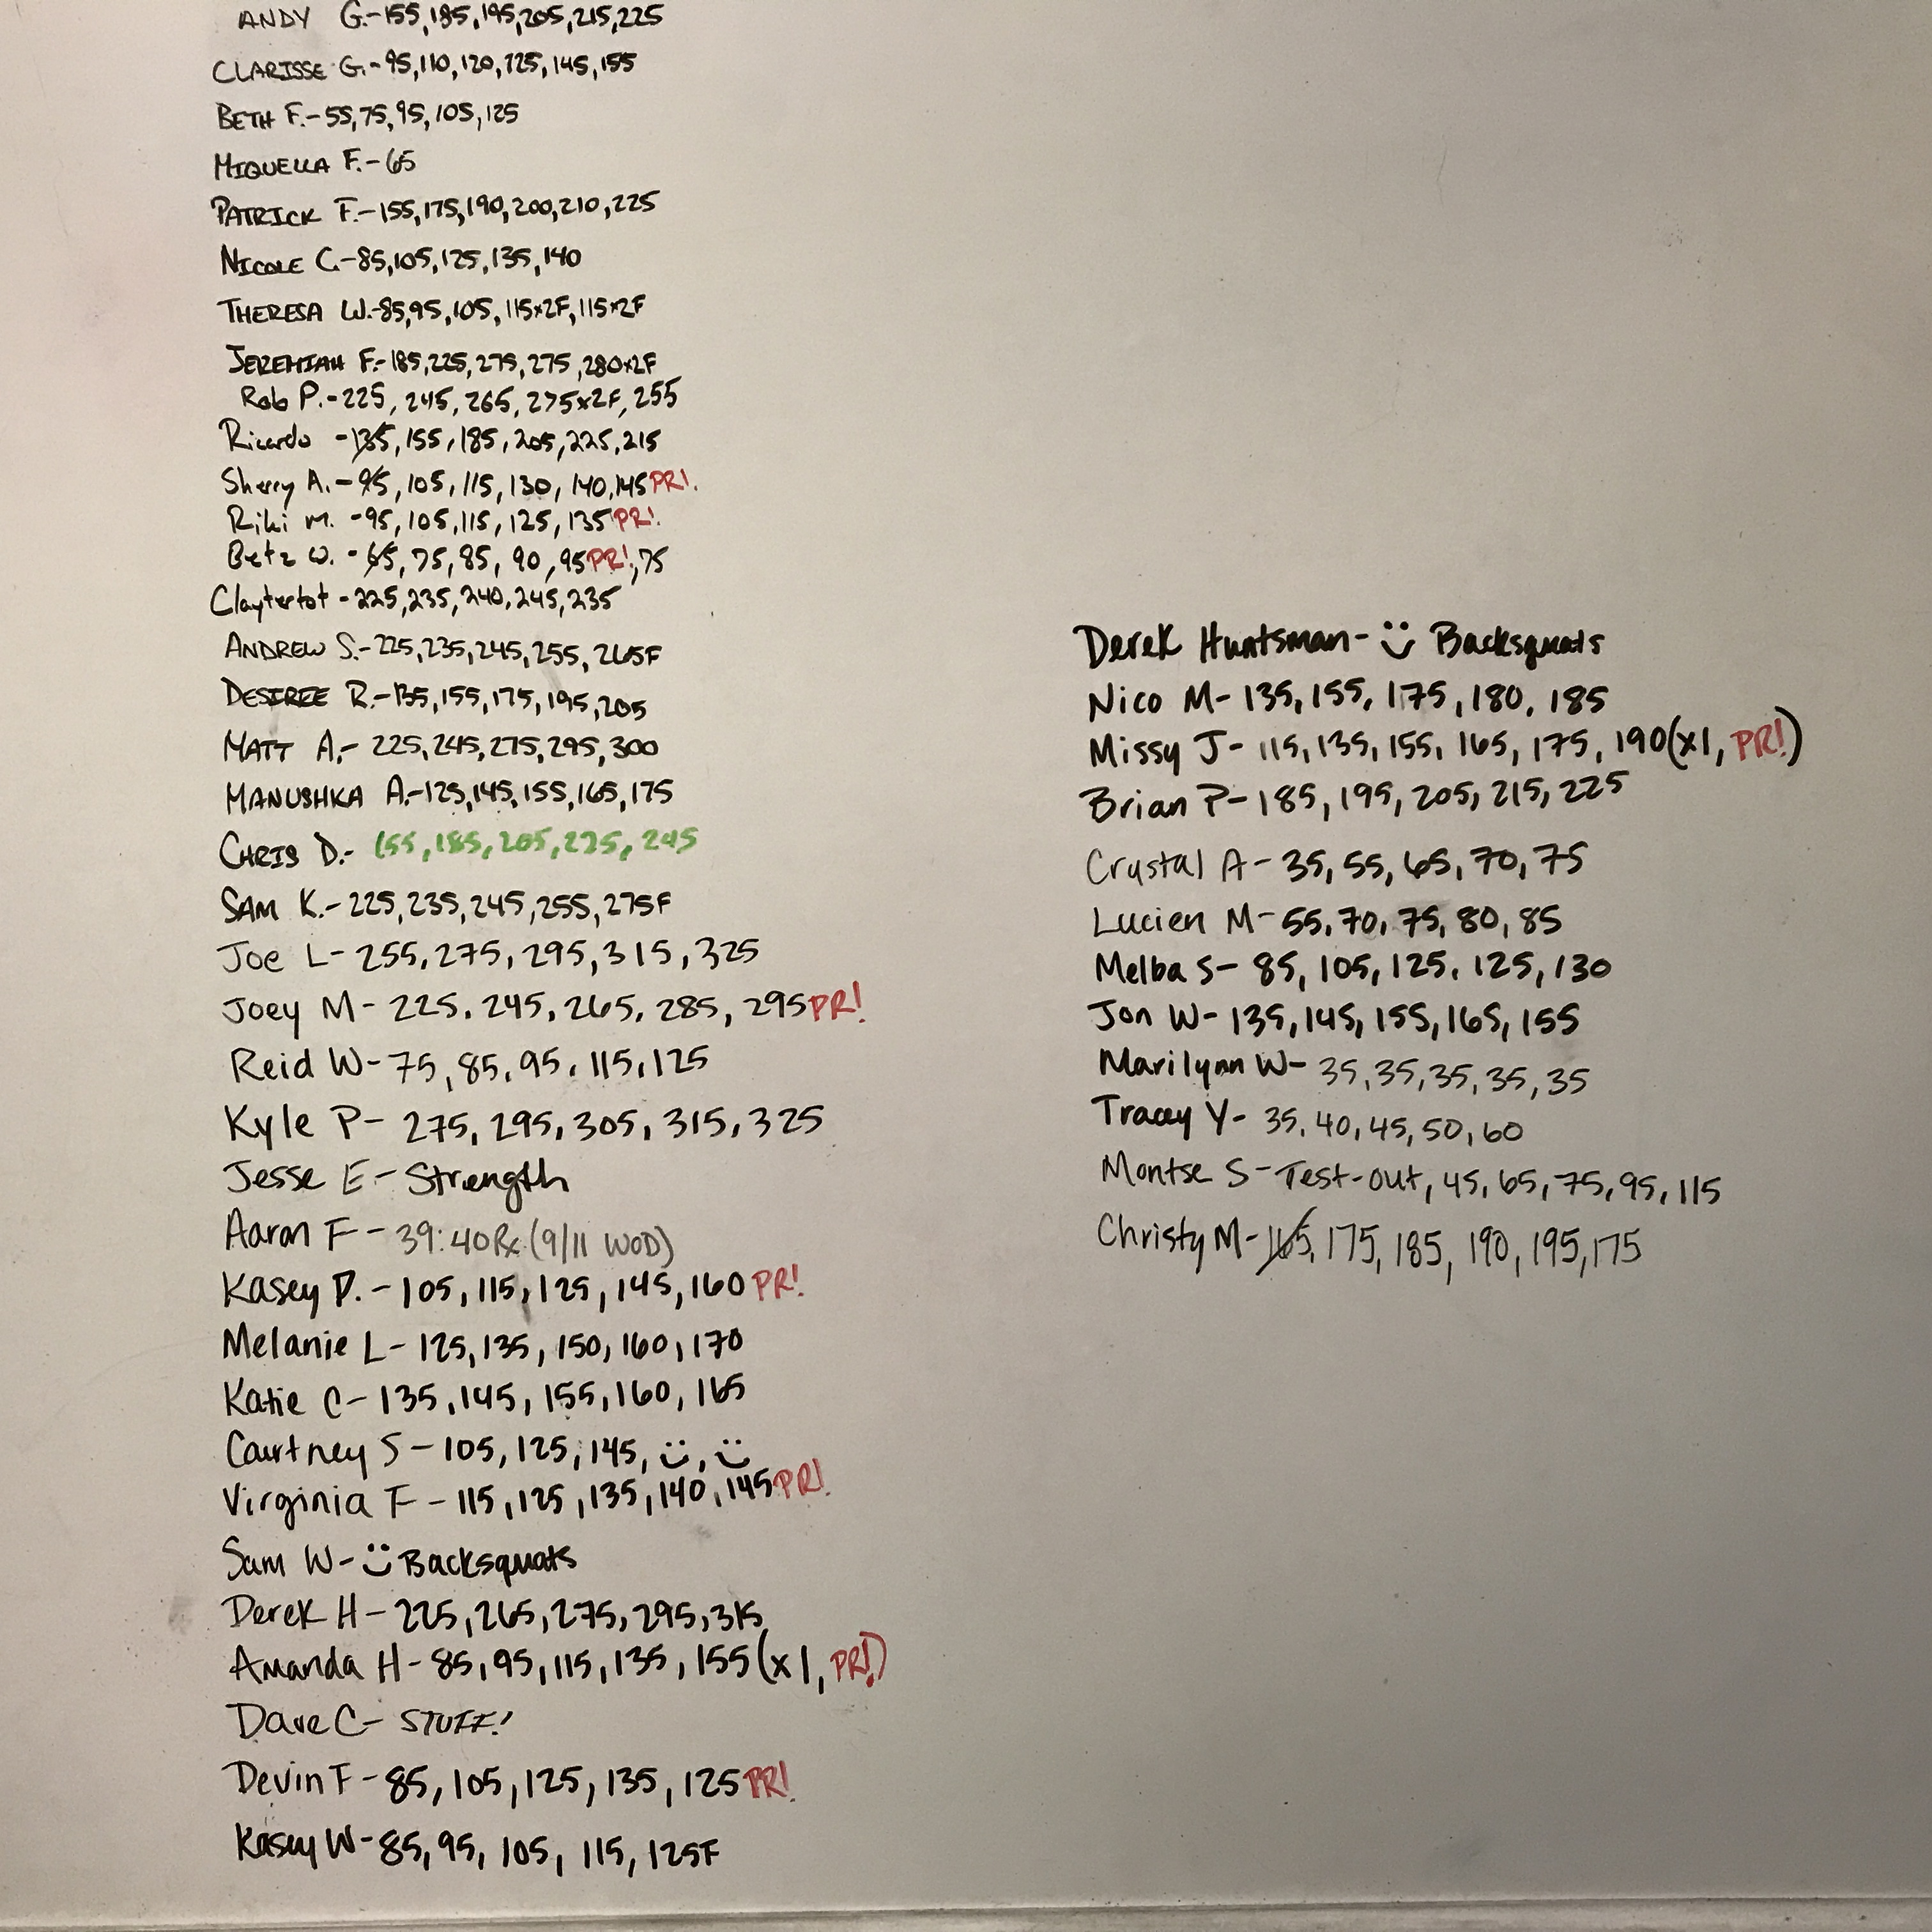 ANDY G.-155,185,195,205,215,225
CLARISSE G.-95,110,120,125,145,155
BETH F.-55,75,95,105,125
MIQUELLA F.-65
PATRICK F.-155,175,190,200,210,225
NICOLE C.-85,105,125,135,140
THERESA W.-85,95,105,115x2F,115x2F
JEREMIAH F.-185,225,275,275,280x2F
Rob P.-225, 245, 265, 275x2F, 255
Ricardo -135, 155, 185, 205, 225, 215
Sherry A.-95, 105, 115, 130, 140, 145 PR!
Riki M. -95, 105, 115, 125, 135 PR!
Betz W. - 65, 75, 85, 90, 95 PR!, 75
Claytertot -225,235,240,245,235
ANDREW S.-225,235,245,255,265F
DESIREE R.-135,155,175,195,205
MATT A.- 225,245,275,295,300
MANUSHKA A.-125,145,155,165,175
CHRIS D.- 155,185,205,225,245
SAM K.-225,235,245,255,275F
Joe L- 255, 275, 295, 315, 325
Joey M- 225, 245, 265, 285, 295 PR!
Reid W-75, 85, 95, 115, 125
Kyle P- 275, 295, 305, 315, 325
Jesse E- Strength
Aaron F - 39:40 Rx (9/11 WOD)
Kasey D. - 105, 115, 125, 145, 160 PR!
Melanie L- 125, 135, 150, 160, 170
Katie C- 135, 145, 155, 160, 165
Courtney S - 105, 125, 145, ü, ü
Virginia F - 115, 125, 135, 140, 145 PR!
Sam W- ü Backsquats
Derek H- 225, 265, 275, 295, 315
Amanda H- 85, 95, 115, 135, 155 (x1, PR!)
Dave C- STUFF!
Devin F - 85, 105, 125, 135, 125 PR!
Kasey W-85, 95, 105, 115, 125F
Derek Huntsman- ü Backsquats
Nico M- 135, 155, 175, 180, 185
Missy J- 115, 135, 155, 165, 175, 190 (x1, PR!)
Brian P- 185, 195, 205, 215, 225
Crystal A- 35, 55, 65, 70, 75
Lucien M- 55, 70, 75, 80, 85
Melba S- 85, 105, 125, 125, 130
Jon W- 135, 145, 155, 165, 155
Marilynn W- 35, 35, 35, 35, 35
Tracey Y- 35, 40, 45, 50, 60
Montse S-Test-out, 45, 65, 75, 95, 115
Christy M-165, 175, 185, 190, 195, 175